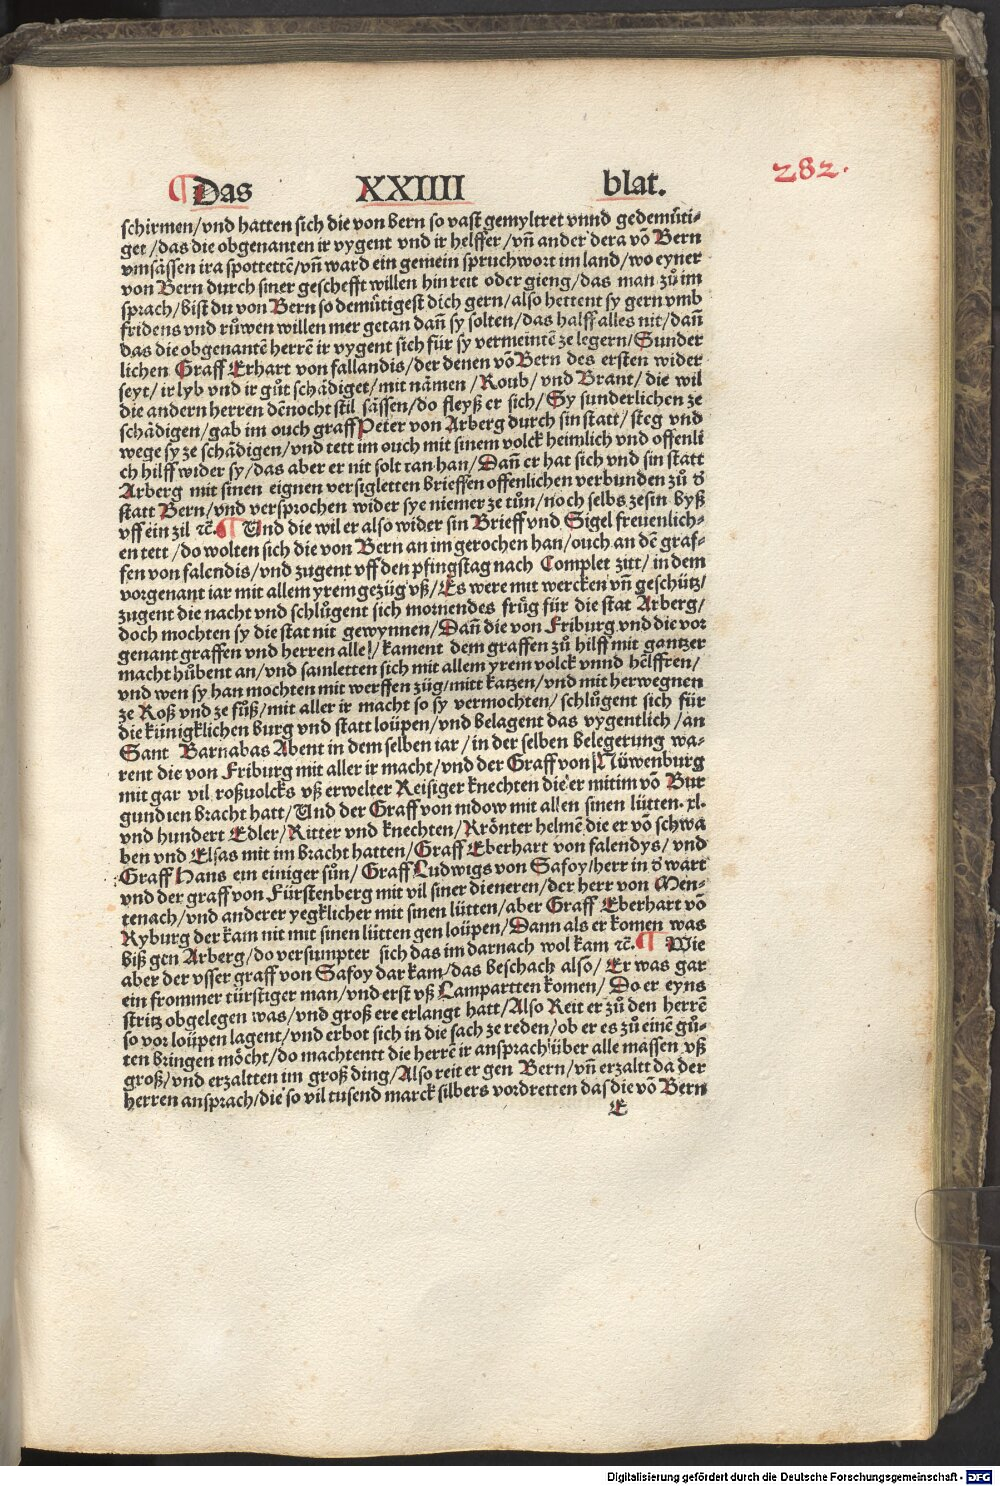 ¶Das XXIIII blat.
282.
schirmen/vnd hatten sich die von bern so vast gemyltret vnnd gedemüti-
get/das die obgenanten ir vygent vnd ir helffer/vñ ander dera võ Bern
vmsässen ira spottettē/vñ ward ein gemein spruchwort im land/wo eyner
von Bern durch siner geschefft willen hin reit oder gieng/das man zů im
sprach/bist du von Bern so demütigest dich gern/also hettent sy gern vmb
fridens vnd růwen willen mer getan dañ sy solten/das halff alles nit/dañ
das die obgenantē herrē ir vygent sich für sy vermeintē ze legern/Sunder
lichen Graff Erhart von fallandis/der denen võ Bern des ersten wider
seyt/ir lyb vnd ir gůt schädiget/mit nämen/Roub/vnd Brant/die wil
die andern herren dēnocht stil sässen/do fleyß er sich/Sy sunderlichen ze
schädigen/gab im ouch graff Peter von Arberg durch sin statt/steg vnd
wege sy ze schädigen/vnd tett im ouch mit sinem volck heimlich vnd offenli
ch hilff wider sy/das aber er nit solt tan han/Dañ er hat sich vnd sin statt
Arberg mit sinen eignen versigletten brieffen offenlichen verbunden zů d̄
statt Bern/vnd versprochen wider sye niemer ze tůn/noch selbs ze sin byß
vff ein zil ⁊c̄. ¶ Vnd die wil er also wider sin Brieff vnd Sigel freuenlich-
en tett/do wolten sich die von Bern an im gerochen han/ouch an dē graf-
fen von falendis/vnd zugent vff den pfingstag nach Complet zitt/in dem
vorgenant iar mit allem yrem gezüg vß/Es were mit wercken vñ geschütz/
zugent die nacht vnd schlůgent sich mornendes frůg für die stat Arberg/
doch mochten sy die stat nit gewynnen/Dañ die von Friburg vnd die vor
genant graffen vnd herren alle/kament dem graffen zů hilff mit gantzer
macht hůbent an/vnd samletten sich mit allem yrem volck vnnd helffren/
vnd wen sy han mochten mit werffen züg/mitt katzen/vnd mit herwegnen
ze Roß vnd ze fůß/mit aller ir macht so sy vermochten/schlůgent sich für
die künigklichen burg vnd statt loüpen/vnd belagent das vygentlich/an
Sant Barnabas Abent in dem selben iar/in der selben belegerung wa-
rent die von Friburg mit aller ir macht/vnd der Graff von Nüwenburg
mit gar vil roßuolcks vß erwelter Reisiger knechten die er mitim võ Bur
gundien bracht hatt/Vnd der Graff von nidow mit allen sinen lütten. xl.
vnd hundert Edler/Ritter vnd knechten/Krönter helmē die er võ schwa
ben vnd Elsas mit im bracht hatten/Graff Eberhart von falendys/vnd
Graff Hans ein einiger sůn/Graff Ludwigs von Safoy/herr in d̄ wart
vnd der graff von Fürstenberg mit vil siner dieneren/der herr von Men-
tenach/vnd anderer yegklicher mit sinen lütten/aber Graff Eberhart võ
Kyburg der kam nit mit sinen lütten gen loüpen/Dann als er komen was
biß gen Arberg/do versumpter sich das im darnach wol kam ⁊c̄. ¶ Wie
aber der vsser graff von Safoy dar kam/das beschach also/Er was gar
ein frommer türstiger man/vnd erst vß Lampartten komen/Do er eyns
stritz obgelegen was/vnd groß ere erlangt hatt/Also Reit er zů den herrē
so vor loüpen lagent/vnd erbot sich in die sach ze reden/ob er es zů einē gů-
ten bringen möcht/do machtentt die herrē ir ansprach über alle massen vß
groß/vnd erzaltten im groß ding/Also reit er gen Bern/vñ erzaltt da der
herren ansprach/die so vil tusend marck silbers vordretten das die võ Bern
E
Digitalisierung gefördert durch die Deutsche Forschungsgemeinschaft - DFG